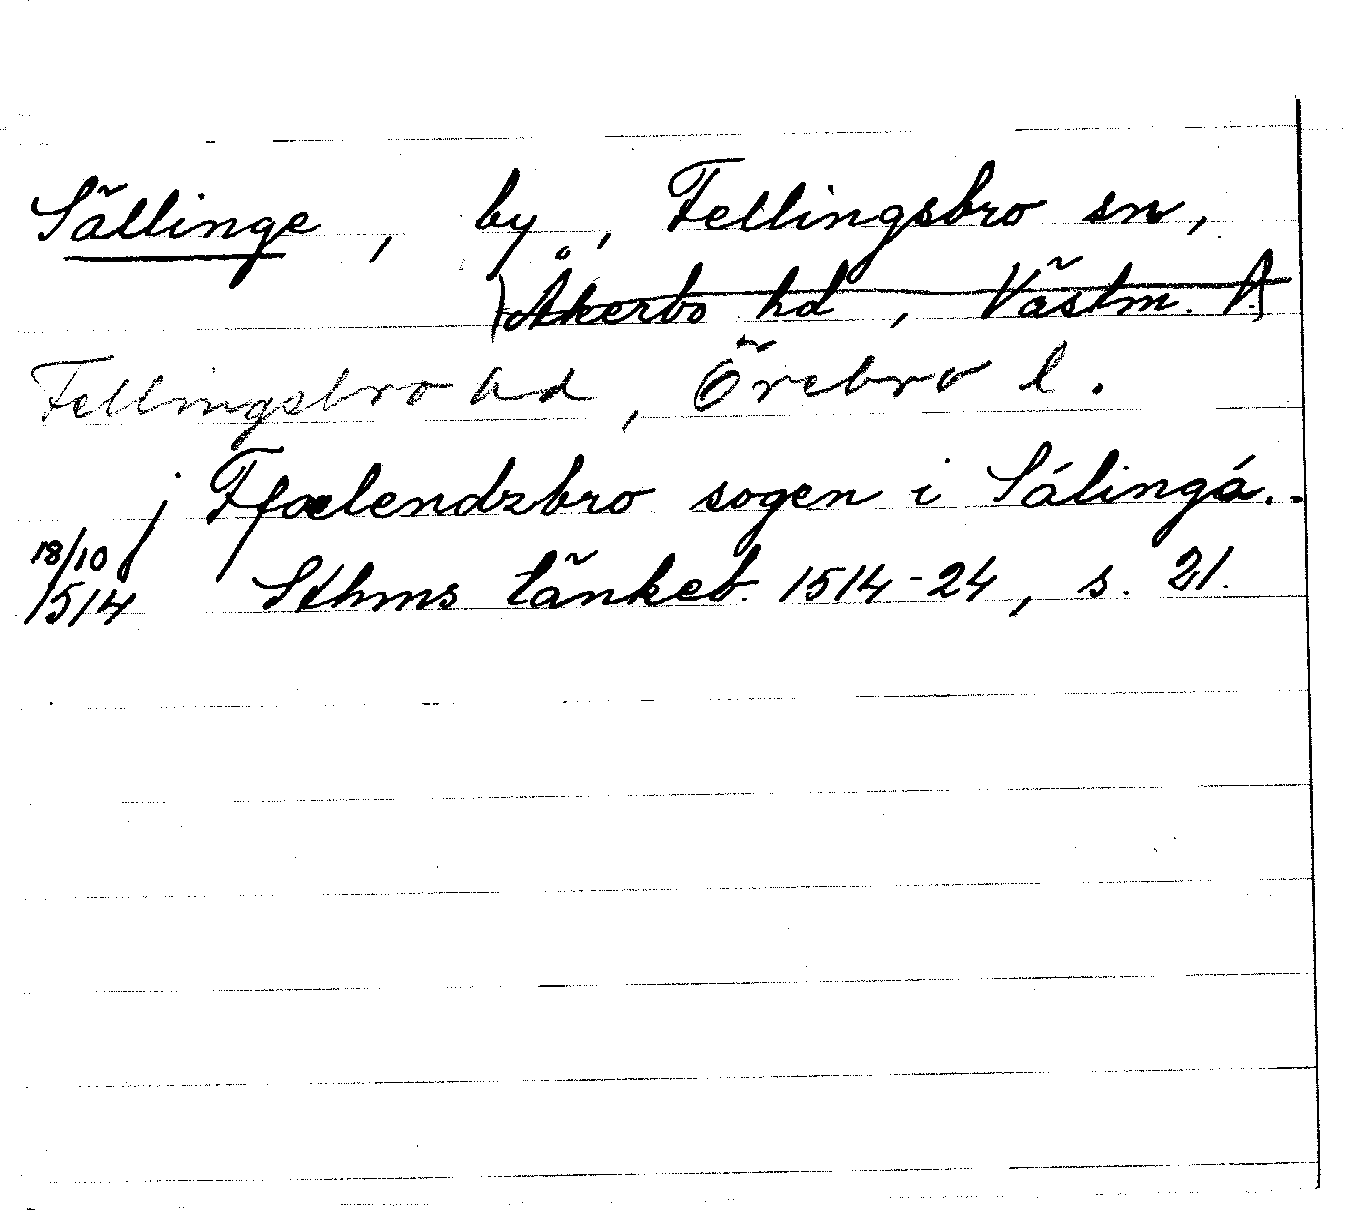 Sällinge, by, Fellingsbro sn,
(Åkerbo hd, Västm. l.)
Fellingsbro hd, Örebro l.
j Ffælendzbro sogen i Sálingá..
18/10
1514 Sthms tänkeb. 1514-24, s. 21.